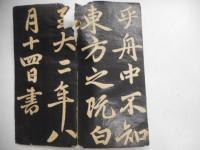 乎舟中不知
東方之既白
至大二年八
月十四日書